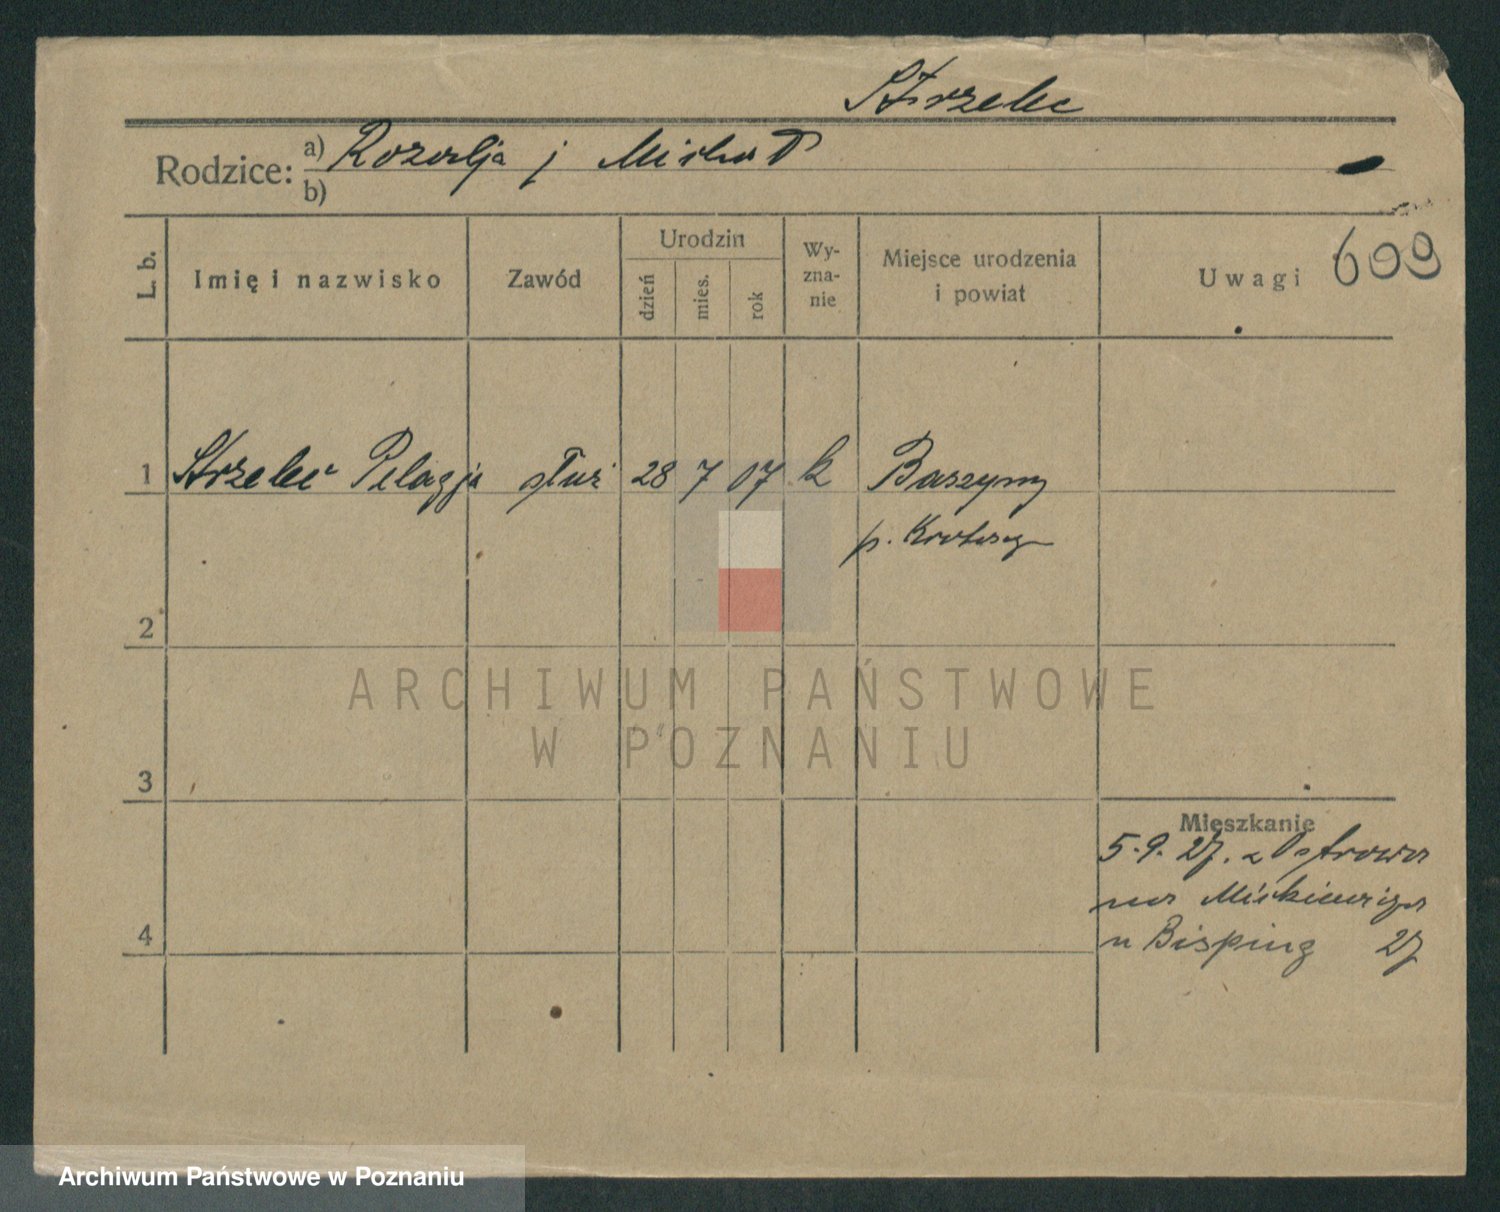 Strzelec
Rodzice: a) Rozalja i Michał
b)
609
L. b. Imię i nazwisko Zawód Urodzin dzień mies. rok Wy-zna-nie Miejsce urodzenia i powiat Uwagi
1 Strzelec Pelagja służ 28 7 07 k Baszyny
p. Krotosz
2
ARCHIWUM PAŃSTWOWE
W POZNANIU
3
Mieszkanie
5.9.27. z Ostrowa
na Mickiewicza
4 u Bisping 27
Archiwum Państwowe w Poznaniu